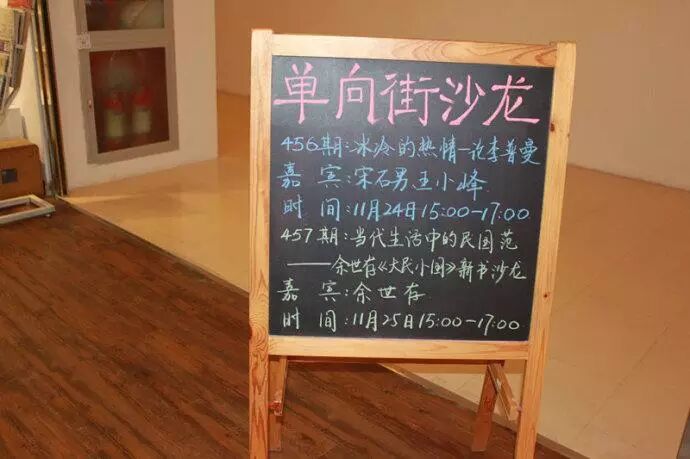 单向街沙龙
456期:冰冷的热情—论李普曼
嘉 宾:宋石男 王小峰
时 间:11月24日15:00-17:00
457期:当代生活中的民国范
——余世存《大民小国》新书沙龙
嘉 宾:余世存
时 间:11月25日15:00-17:00